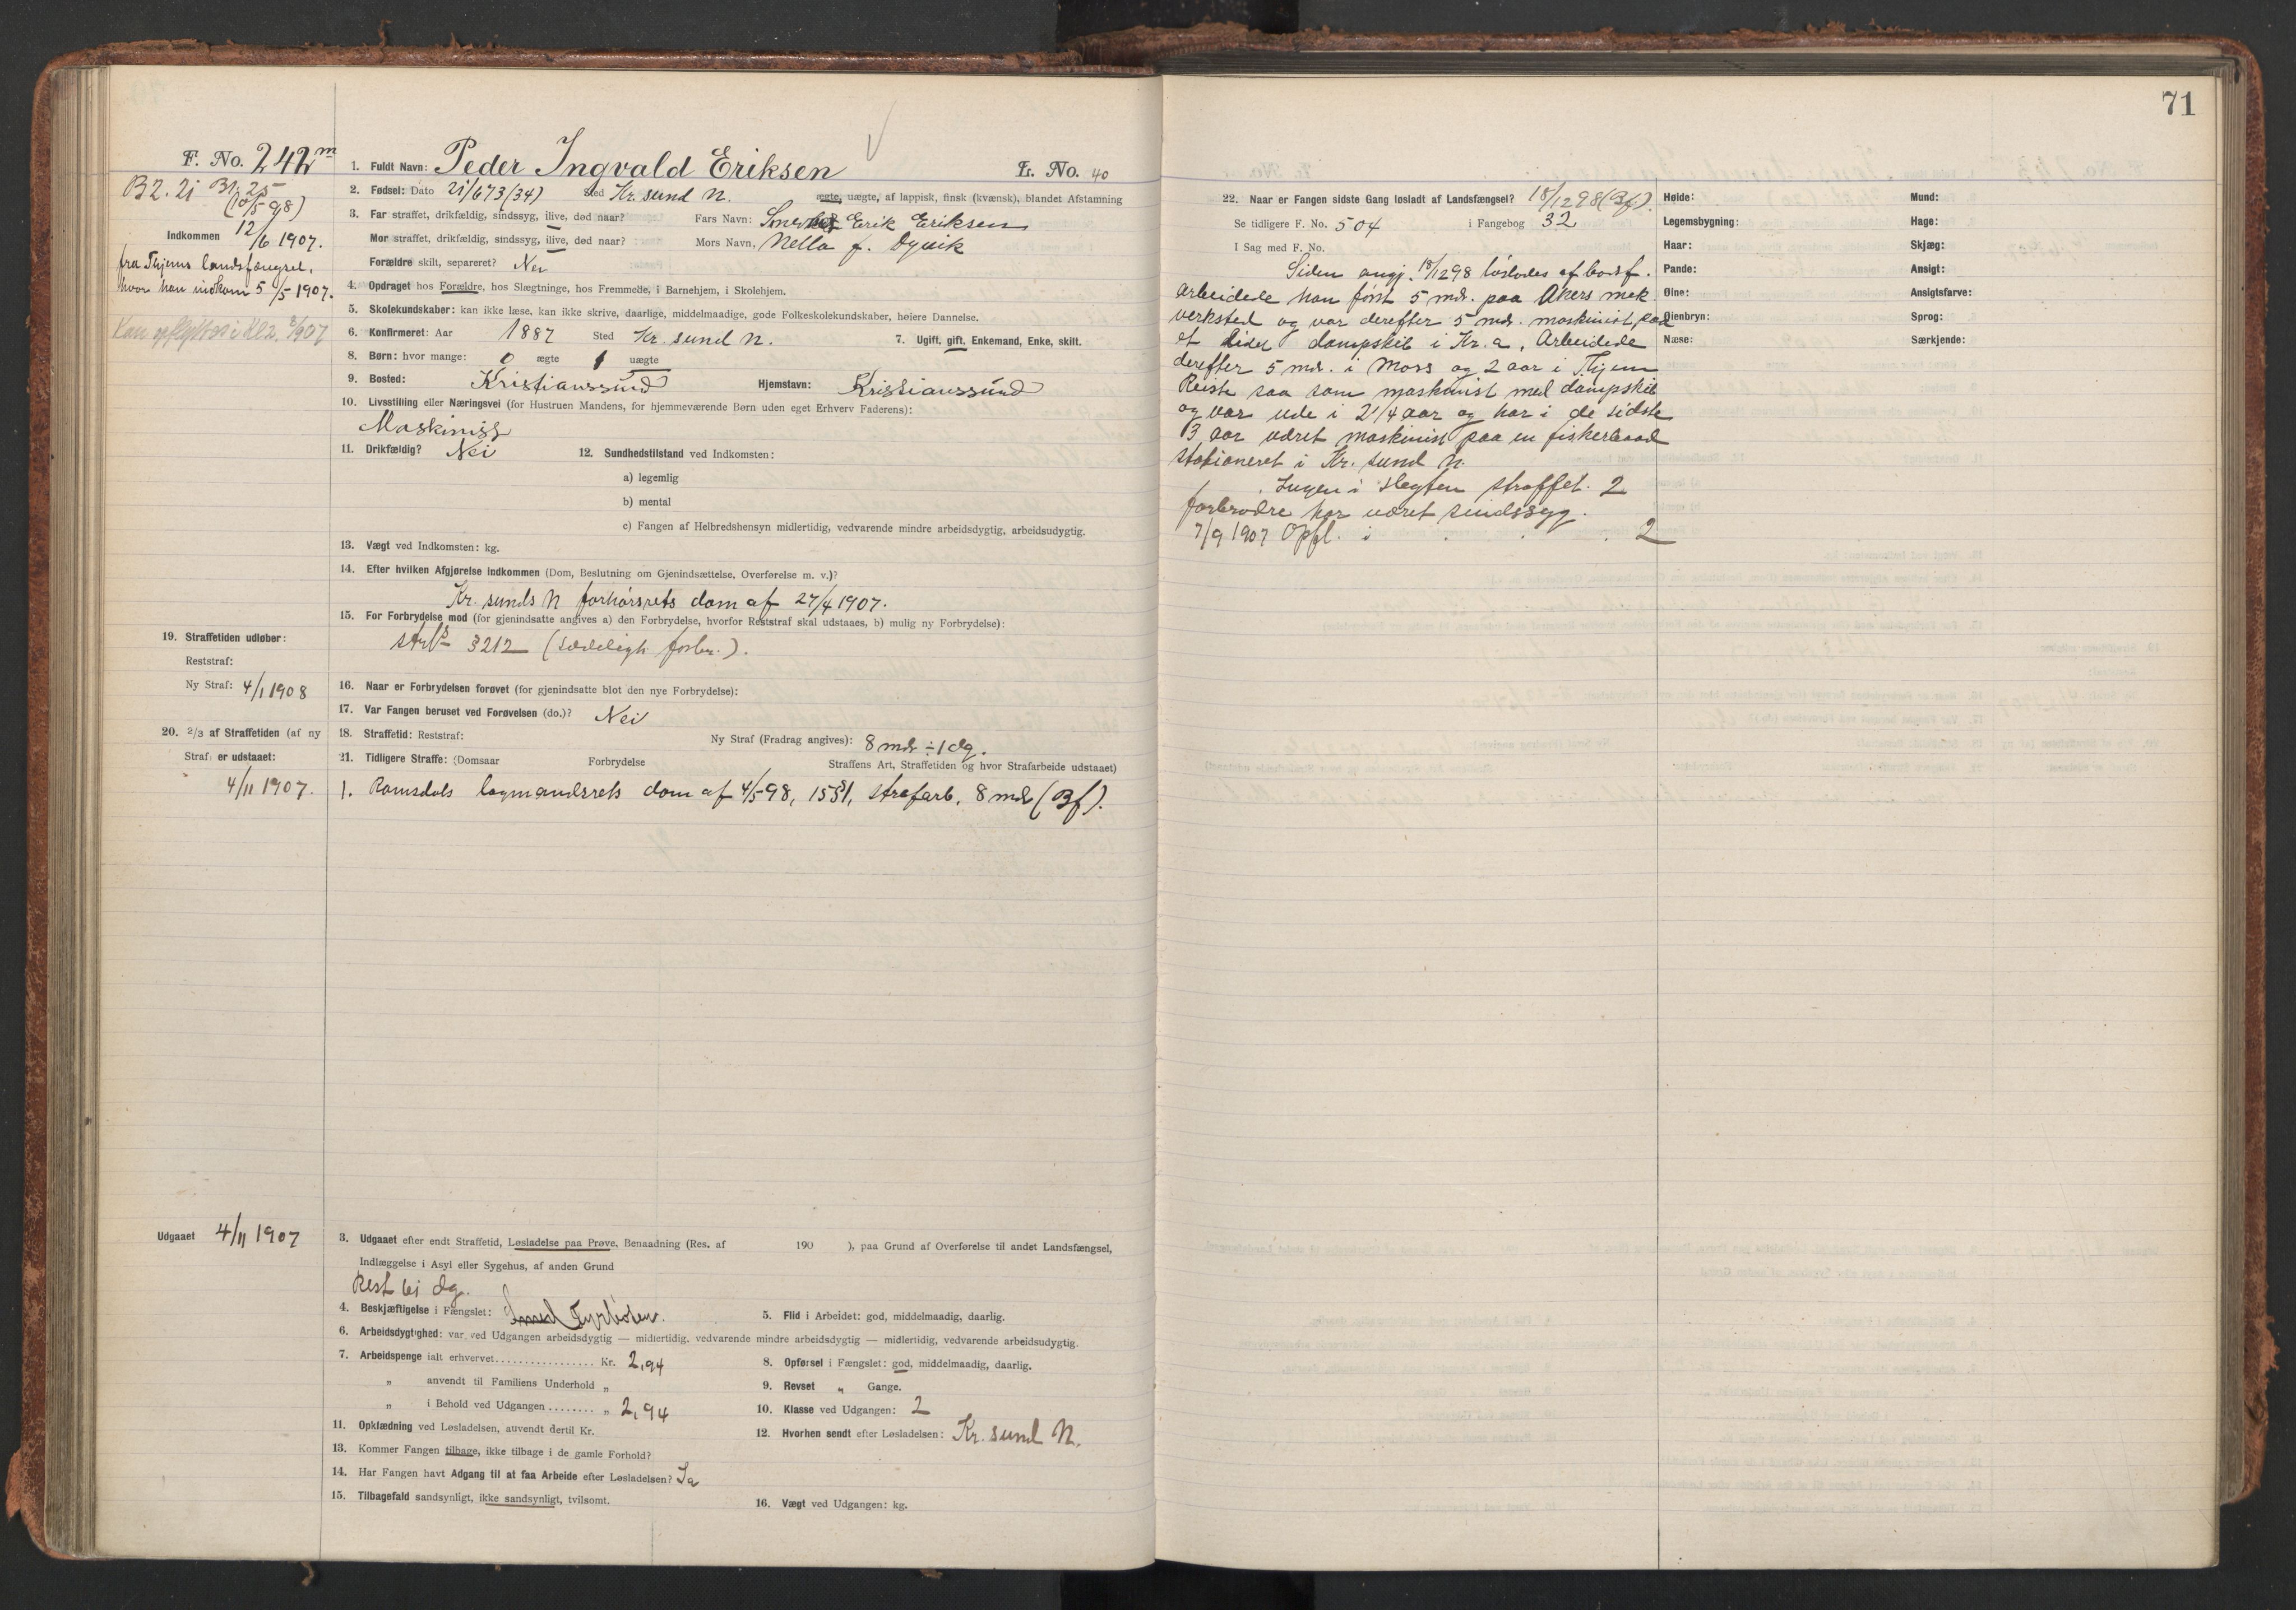 71
F. No. 242 m
B2. 21 B1 25
(10/5 98)
Indkommen 12/6 1907.
fra Thjems landsfængsel,
hvor han indkom 5/5 1907.
Kan opflyttes i Kl 2. 3/9 07
1. Fuldt Navn: Peder Ingvald Eriksen L. No. 40
2. Fødsel: Dato 21/6 73 (34) Sted Kr. sund N. ægte, uægte, af lappisk, finsk (kvænsk), blandet Afstamning
3. Far straffet, drikfældig, sindssyg, ilive, død naar? Fars Navn: Erik Eriksen
Mor straffet, drikfældig, sindssyg, ilive, død naar? Mors Navn, Nella f. Dyvik
Forældre skilt, separeret? Nei
4. Opdraget hos Forældre, hos Slægtninge, hos Fremmede, i Barnehjem, i Skolehjem.
5. Skolekundskaber: kan ikke læse, kan ikke skrive, daarlige, middelmaadige, gode Folkeskolekundskaber, høiere Dannelse.
6. Konfirmeret: Aar 1887 Sted Kr. sund N. 7. Ugift, gift, Enkemand, Enke, skilt.
8. Børn: hvor mange: 0 ægte 1 uægte
9. Bosted: Kristianssund Hjemstavn: Kristianssund
10. Livsstilling eller Næringsvei (for Hustruen Mandens, for hjemmeværende Børn uden eget Erhverv Faderens):
Maskinist
11. Drikfældig? Nei 12. Sundhedstilstand ved Indkomsten:
a) legemlig
b) mental
c) Fangen af Helbredshensyn midlertidig, vedvarende mindre arbeidsdygtig, arbeidsudygtig.
13. Vægt ved Indkomsten: kg.
14. Efter hvilken Afgjørelse indkommen (Dom, Beslutning om Gjenindsættelse, Overførelse m. v.)?
Kr. sunds N forhørsrets dom af 27/4 1907.
15. For Forbrydelse mod (for gjenindsatte angives a) den Forbrydelse, hvorfor Reststraf skal udstaaes, b) mulig ny Forbrydelse):
strl § 212 (sædeligh. forbr.).
19. Straffetiden udløber:
Reststraf:
Ny Straf: 4/1 1908
16. Naar er Forbrydelsen forøvet (for gjenindsatte blot den nye Forbrydelse):
17. Var Fangen beruset ved Forøvelsen (do.)? Nei
20. 2/3 af Straffetiden (af ny
Straf) er udstaaet:
4/11 1907.
18. Straffetid: Reststraf: Ny Straf (Fradrag angives): 8 mdr ÷ 1 dg.
21. Tidligere Straffe: (Domsaar Forbrydelse Straffens Art, Straffetiden og hvor Strafarbeide udstaaet)
1. Romsdals lagmandsrets dom af 4/5 98, 15 § 1, strafarb. 8 mdr (Bf).
Udgaaet 4/11 1907
3. Udgaaet efter endt Straffetid, Løsladelse paa Prøve, Benaadning (Res. af 190 ), paa Grund af Overførelse til andet Landsfængsel,
Indlæggelse i Asyl eller Sygehus, af anden Grund
Rest 61 dg.
4. Beskjæftigelse i Fængslet: Smed Fyrbøder. 5. Flid i Arbeidet: god, middelmaadig, daarlig.
6. Arbeidsdygtighed: var ved Udgangen arbeidsdygtig — midlertidig, vedvarende mindre arbeidsdygtig — midlertidig, vedvarende arbeidsudygtig.
7. Arbeidspenge ialt erhvervet................. Kr. 2,94 8. Opførsel i Fængslet: god, middelmaadig, daarlig.
„ anvendt til Familiens Underhold „ 9. Revset „ Gange.
„ i Behold ved Udgangen ........ „ 2,94 10. Klasse ved Udgangen: 2
11. Opklædning ved Løsladelsen, anvendt dertil Kr. 12. Hvorhen sendt efter Løsladelsen: Kr. sund N.
13. Kommer Fangen tilbage, ikke tilbage i de gamle Forhold?
14. Har Fangen havt Adgang til at faa Arbeide efter Løsladelsen? Ja
15. Tilbagefald sandsynligt, ikke sandsynligt, tvilsomt. 16. Vægt ved Udgangen: kg.
22. Naar er Fangen sidste Gang løsladt af Landsfængsel? 18/12 98 (Bf).
Se tidligere F. No. 504 i Fangebog 32
I Sag med F. No.
Siden angj. 18/12 98 løslodes af bodsf.
arbeidede han først 5 mdr. paa Akers mek.
verksted og var derefter 5 mdr. maskinist paa
et lidet dampskib i Kr.a, Arbeidede
derefter 5 mdr. i Moss og 2 aar i Thjem
Reiste saa som maskinist med dampskib
og var ude i 2 1/4 aar og har i de sidste
3 aar været maskinist paa en fiskerbaad
stationeret i Kr. sund N.
Ingen i slegten straffet. 2
farbrødre har været sindssyg.
7/9 1907 Opfl. i . . . . 2
Høide: Mund:
Legemsbygning: Hage:
Haar: Skjæg:
Pande: Ansigt:
Øine: Ansigtsfarve:
Øienbryn: Sprog:
Næse: Særkjende: